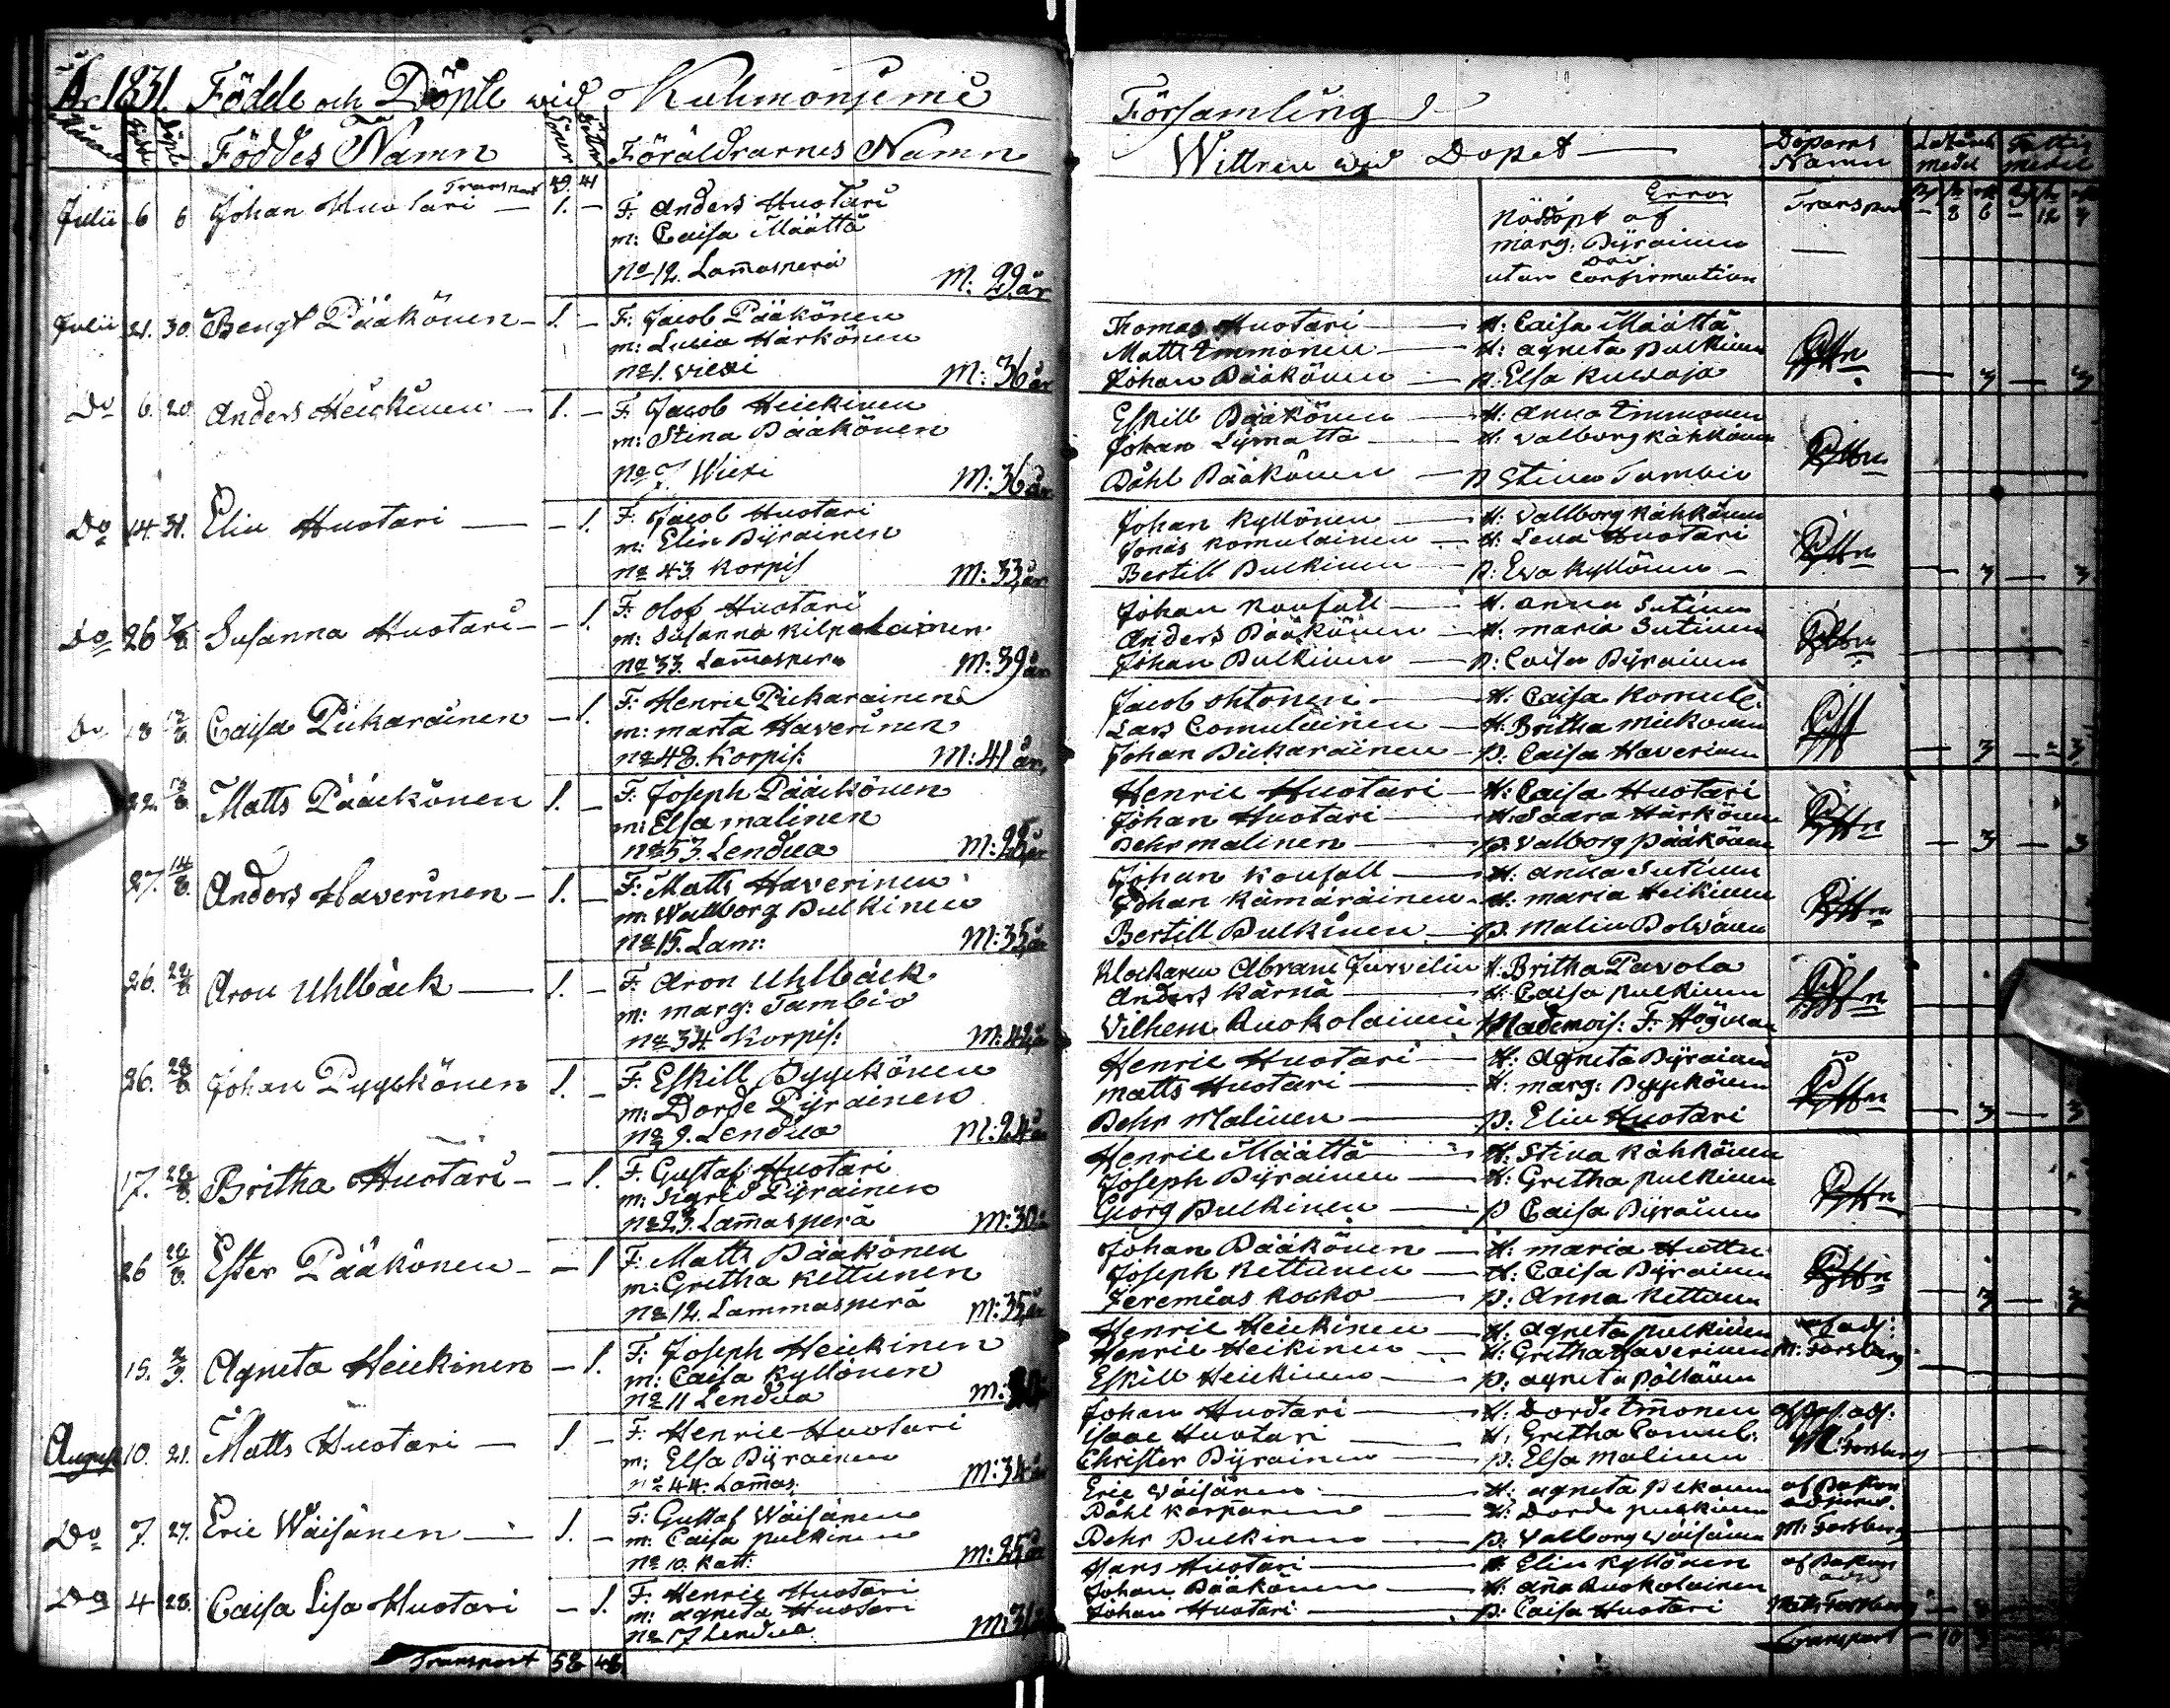 År 1831. Födde och Döpte wid Kuhmoniemi
Församling
Månad Födde Döpte Föddes Namn Söner Döttrar Föräldrarnes Namn
Wittnen wid Dopet Döparns Namn Medel Fattig medel
Transport 49. 41
Julii 6 6 Johan Huotari 1. F: Anders Huotari
m: Caisa Määttä
No 12. Lam̄asperä M: 29 år
Error
Nöddöpt af Transport 8 6 12
marg. Pyrainen
utan Confirmation
Julii 21. 30. Bengt Pääkönen 1. F: Jacob Pääkönen
m: Lusia Härkönen
No 1. Viexi M: 36 år
Thomas Huotari H: Caisa Määttä
Matts Immonen H: Agneta Pulkinen
Johan Pääkönen p: Elsa 3 3
Do 6. 20 Anders Heickinen 1. F: Jacob Heickinen
m: Stina Pääkönen
No 7. Wiexi M: 36 år
Eskill Pääkönen H: Anna Immonen
Johan H: Walborg Kähkönen
Påhl Pääkönen p Stina Tambio
Do 14. 31. Elin Huotari 1. F: Jacob Huotari
m: Elin Pyrainen
No 43. Korpis M: 33 år
Johan Kyllönen H: Vallborg Kähkönen
Jonas Komulainen H: Lena Huotari
Bertill Pulkinen p: Eva Kyllönen 3 3
Do 26 7/8 Susanna Huotari 1. F: Olof Huotari
m: Susanna Kilpelainen
No 33. Lam̄aspera M: 39 år
Johan Konfall H. Anna Sutinen
Anders Pääkönen H: Maria Sutinen
Johan Pulkinen p: Caisa Pyrainen
Do 18 Caisa Pickarainen 1. F: Henric Pickarainen
m: Marta Haverinen
No 48. Korpis: M: 41 år.
Jacob Ohtonen H: Caisa Komul:
Lars Comulainen H: Britha Mickonen
Johan Pickarainen p: Caisa Haverinen 3 3
22. Matts Pääckönen 1. F: Joseph Pääckönen
m: Elsa Malinen
No 53. Lendua M:
Henric Huotari H: Caisa Huotari
Johan Huotari H: Saara Härkönen
Pehr Malinen p: Valborg Pääkönen 3 3
27. 14/8. Anders Haverinen 1. F: Matts Haverinen
m: Wallborg Pulkinen
No 15. Lam: M: 35 år
Johan Konfall H: Anna Sutinen
Johan Kämäräinen H: Maria Heikinen
Bertill Pulkinen p: Malin Polvänen
26. 28/8 Aron Uhlbäck 1. F: Aron Uhlbäck
m: Marg: Tambio
No 34. Korpis: M: 42 år
Klockaren Abram Jurvelin H: Britha Pavola
Anders Kärnä H: Caisa Pulkinen
Vilhem Ruokolainen Mademois: F: Högman
26. 28/8 Johan Pyyckönen 1. F: Eskill Pyyckönen
m: Dorde Pyrainen
No 9. Lendua M: 24 år
Henric Huotari H: Agneta Pyrainen
Matts Huotari H: Marg: Pyyckönen
Pehr Malinen p: Elin Huotari 3 3
17. 28/8. Britha Huotari 1. F: Gustaf Huotari
m: Sigred Pyrainen
No 23. Lam̄asperä M: 30
Henric Määttä H: Stina Kähkönen
Joseph Pyrainen H: Gretha Pulkinen
Georg Pulkinen p Caisa Pyrainen
26 28/8. Ester Pääkönen 1 F: Matts Pääkönen
m: Gretha Kettunen
No 12. Lammasperä M: 35 år
Johan Pääkönen H: Maria Huttu
Joseph Kettunen H: Caisa Pyrainen
Jeremias Kocko p: Anna Kettunen 3 3
15. Agneta Heickinen 1. F: Joseph Heickinen
m: Caisa Kyllönen
No 11 Lendua m:
Henric Heickinen H: Agneta Pulkinen adj:
Henric Heikinen H: Gretha Haverinen M: Forsberg
Eskill Heickinen p: Agneta Pöllänen
August 10. 21. Matts Huotari 1. F: Henric Huotari
m: Elsa Pyrainen
No 44. Lam̄as: M: 34 år
Johan Huotari H: Dorde Im̄onen af adj:
Isaac Huotari H: Gretha Comul: M: Forsberg
Christer Pyrainen p: Elsa Malinen
Do 7. 27. Eric Wäisänen 1. F: Gustaf Wäisänen
m: Caisa Pulkinen
No 10. Katt: M: 25 år
Eric Wäisänen H: Agneta af
Påhl Karpanen H: Dorde Pulkinen
Pehr Pulkinen p: Valborg Wäisänen M: Forsberg
Do 4 28. Caisa Lisa Huotari 1. F: Henric Huotari
m: Agneta Huotari
No 17 Lendua M: 31
Hans Huotari H Elin Kyllönen af
Johan Pääkönen H: An̄a Ruokolainen
Johan Huotari p: Caisa Huotari Matts Forsberg
Transport 58 48.
Transport